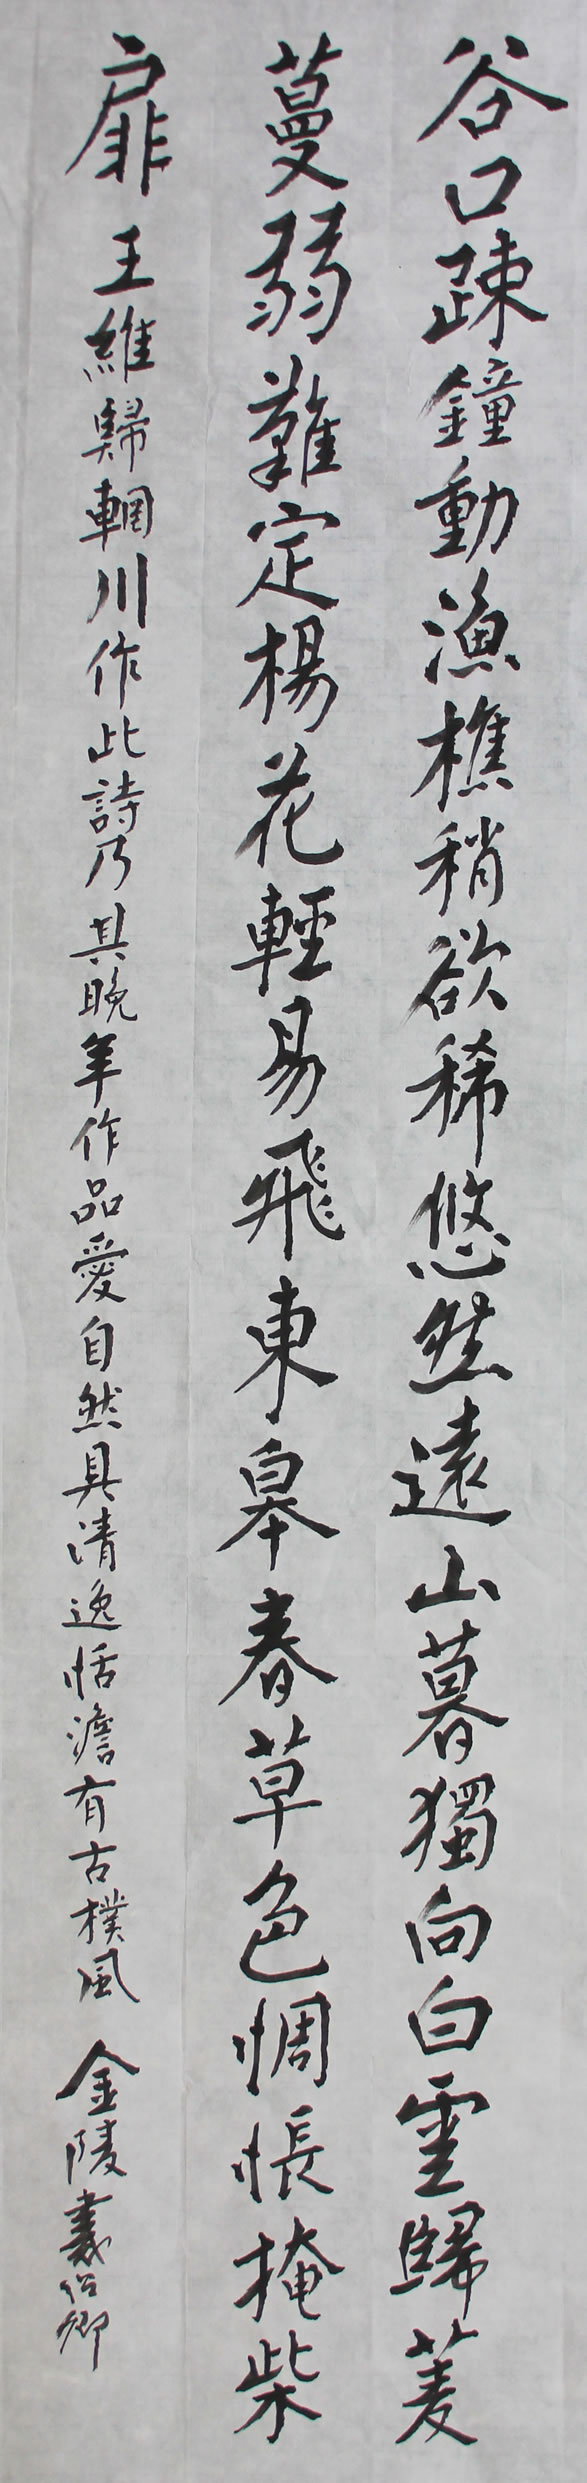 谷口疎鐘動漁樵稍欲稀悠然遠山暮獨向白雲歸菱
蔓弱難定楊花輕易飛東皋春草色惆悵掩柴
扉 王維歸輞川作此詩乃其晚年作品愛自然具清逸恬澹有古樸風 金陵